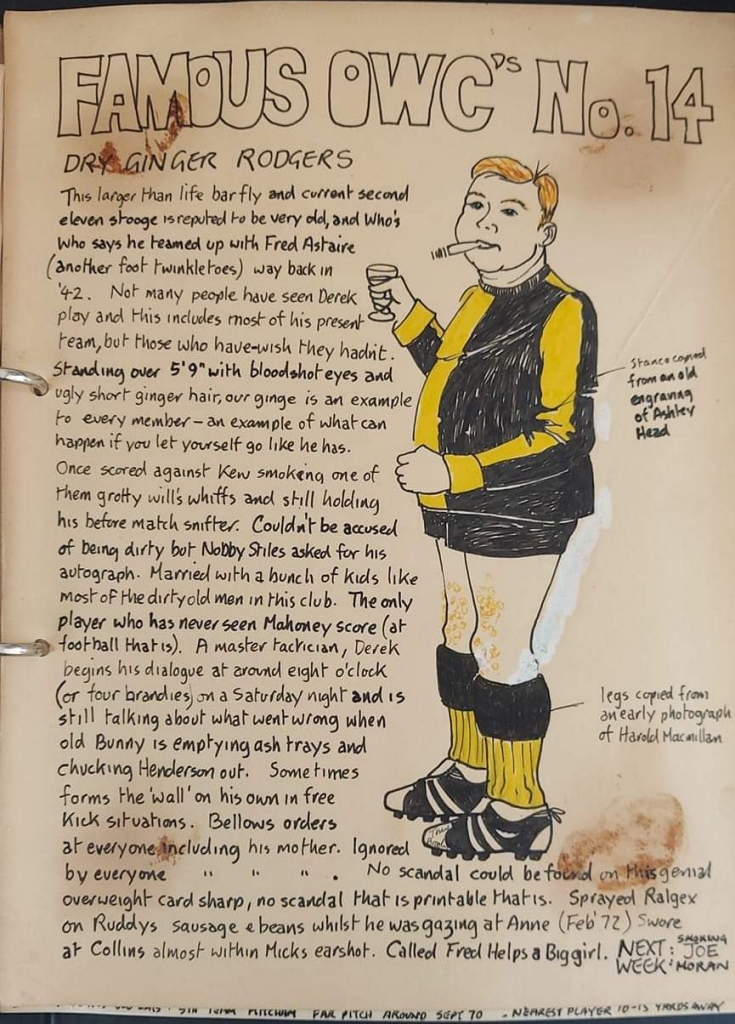 FAMOUS OWC'S No. 14
DRY GINGER RODGERS
This larger than life barfly and current second
eleven stooge is reputed to be very old, and Who's
Who says he teamed up with Fred Astaire
(another foot twinkletoes) way back in
'42. Not many people have seen Derek
play and this includes most of his present
team, but those who have-wish they hadn't.
Standing over 5'9" with bloodshot eyes and
ugly short ginger hair, our ginge is an example
to every member - an example of what can
happen if you let yourself go like he has.
Once scored against Kew smoking one of
them grotty will's whiffs and still holding
his before match snifter. Couldn't be accused
of being dirty but Nobby Stiles asked for his
autograph. Married with a bunch of kids like
most of the dirty old men in this club. The only
player who has never seen Mahoney score (at
football that is). A master tactician, Derek
begins his dialogue at around eight o'clock
(or four brandies) on a Saturday night and is
still talking about what went wrong when
old Bunny is emptying ash trays and
chucking Henderson out. Sometimes
forms the 'wall' on his own in free
kick situations. Bellows orders
at everyone including his mother. Ignored
by everyone " " " . No scandal could be found on this genial
overweight card sharp, no scandal that is printable that is. Sprayed Ralgex
on Ruddys sausage & beans whilst he was gazing at Anne (Feb' 72) Swore
at Collins almost within Micks earshot. Called Fred Helps a Big girl.
NEXT WEEK: SMOKING JOE MORAN
Stance copied
from an old
engraving
of Ashley
Head
legs copied from
an early photograph
of Harold Macmillan
5TH TEAM MITCHAM FAR PITCH AROUND SEPT 70 . NEAREST PLAYER 10-15 YARDS AWAY